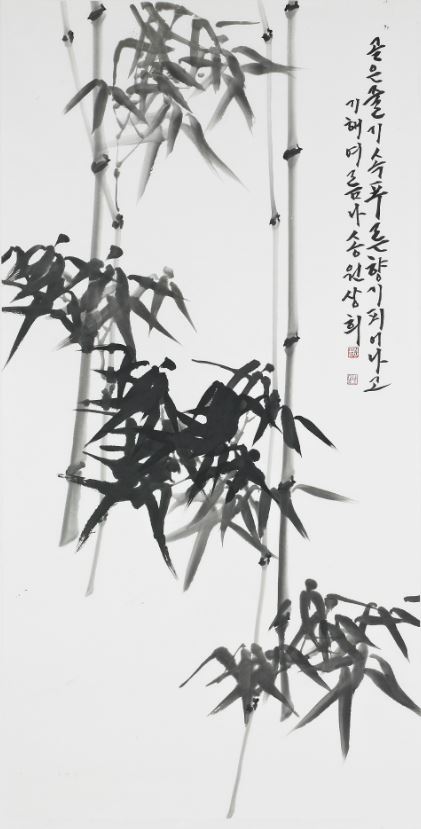 곧은 줄기 속 푸른 향기 피어나고
기해 여름 나송 원상희